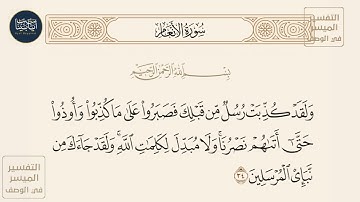 سُورَةُ الأَنْعَام
التفسير
الميسر
في الوصف
بِسْمِ اللَّهِ الرَّحْمَٰنِ الرَّحِيمِ
وَلَقَدْ كُذِّبَتْ رُسُلٌ مِّن قَبْلِكَ فَصَبَرُوا۟ عَلَىٰ مَا كُذِّبُوا۟ وَأُوذُوا۟
حَتَّىٰٓ أَتَىٰهُمْ نَصْرُنَا ۚ وَلَا مُبَدِّلَ لِكَلِمَٰتِ ٱللَّهِ ۚ وَلَقَدْ جَآءَكَ مِن
نَّبَإِى۟ ٱلْمُرْسَلِينَ ٣٤
التفسير
الميسر
في الوصف